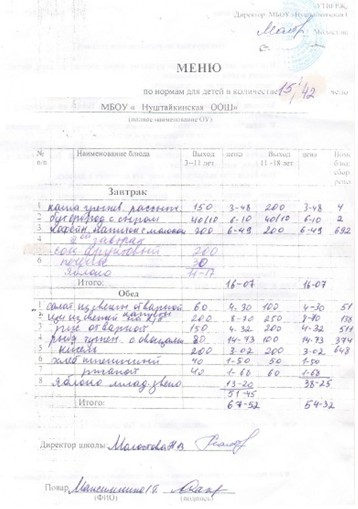 УТВЕРЖ
Директор МБОУ «Нуштайкинская
МЕНЮ
по нормам для детей в количестве 15/42 чело
МБОУ « Нуштайкинская ООШ»
(полное наименование ОУ)
№ п/п Наименование блюда Выход 7–11 лет цена Выход 11 -18 лет цена Ном. блюд сбор
Завтрак
1 каша гречнев. рассып 150 3-48 200 3-48 4
2 бутерброд с сыром 40/10 6-10 40/10 6-10 2
3 кофейн. напиток с молоком 200 6-49 200 6-49 692
4 2ой завтрак
5 сок фруктовый 200
6 печенье 30
яблоко 11-17
Итого: 16-07 16-07
Обед
1 салат из свеклы отварной 60 4-30 100 4-30 51
2 щи из свежей капусты 200 8-70 250 8-70
3 рис отварной 150 4-32 200 4-32 511
4 рыба тушен. с овощами 80 14-73 100 14-73 374
5 кисель 200 3-02 200 3-02 648
6 хлеб пшеничный 40 1-50 50 1-50
7 ржаной 40 1-68 60 1-68
8 яблоко 13-20 38-25
51-45
Итого: 67-52 54-32
Директор школы:
Повар
(ФИО) (подпись)